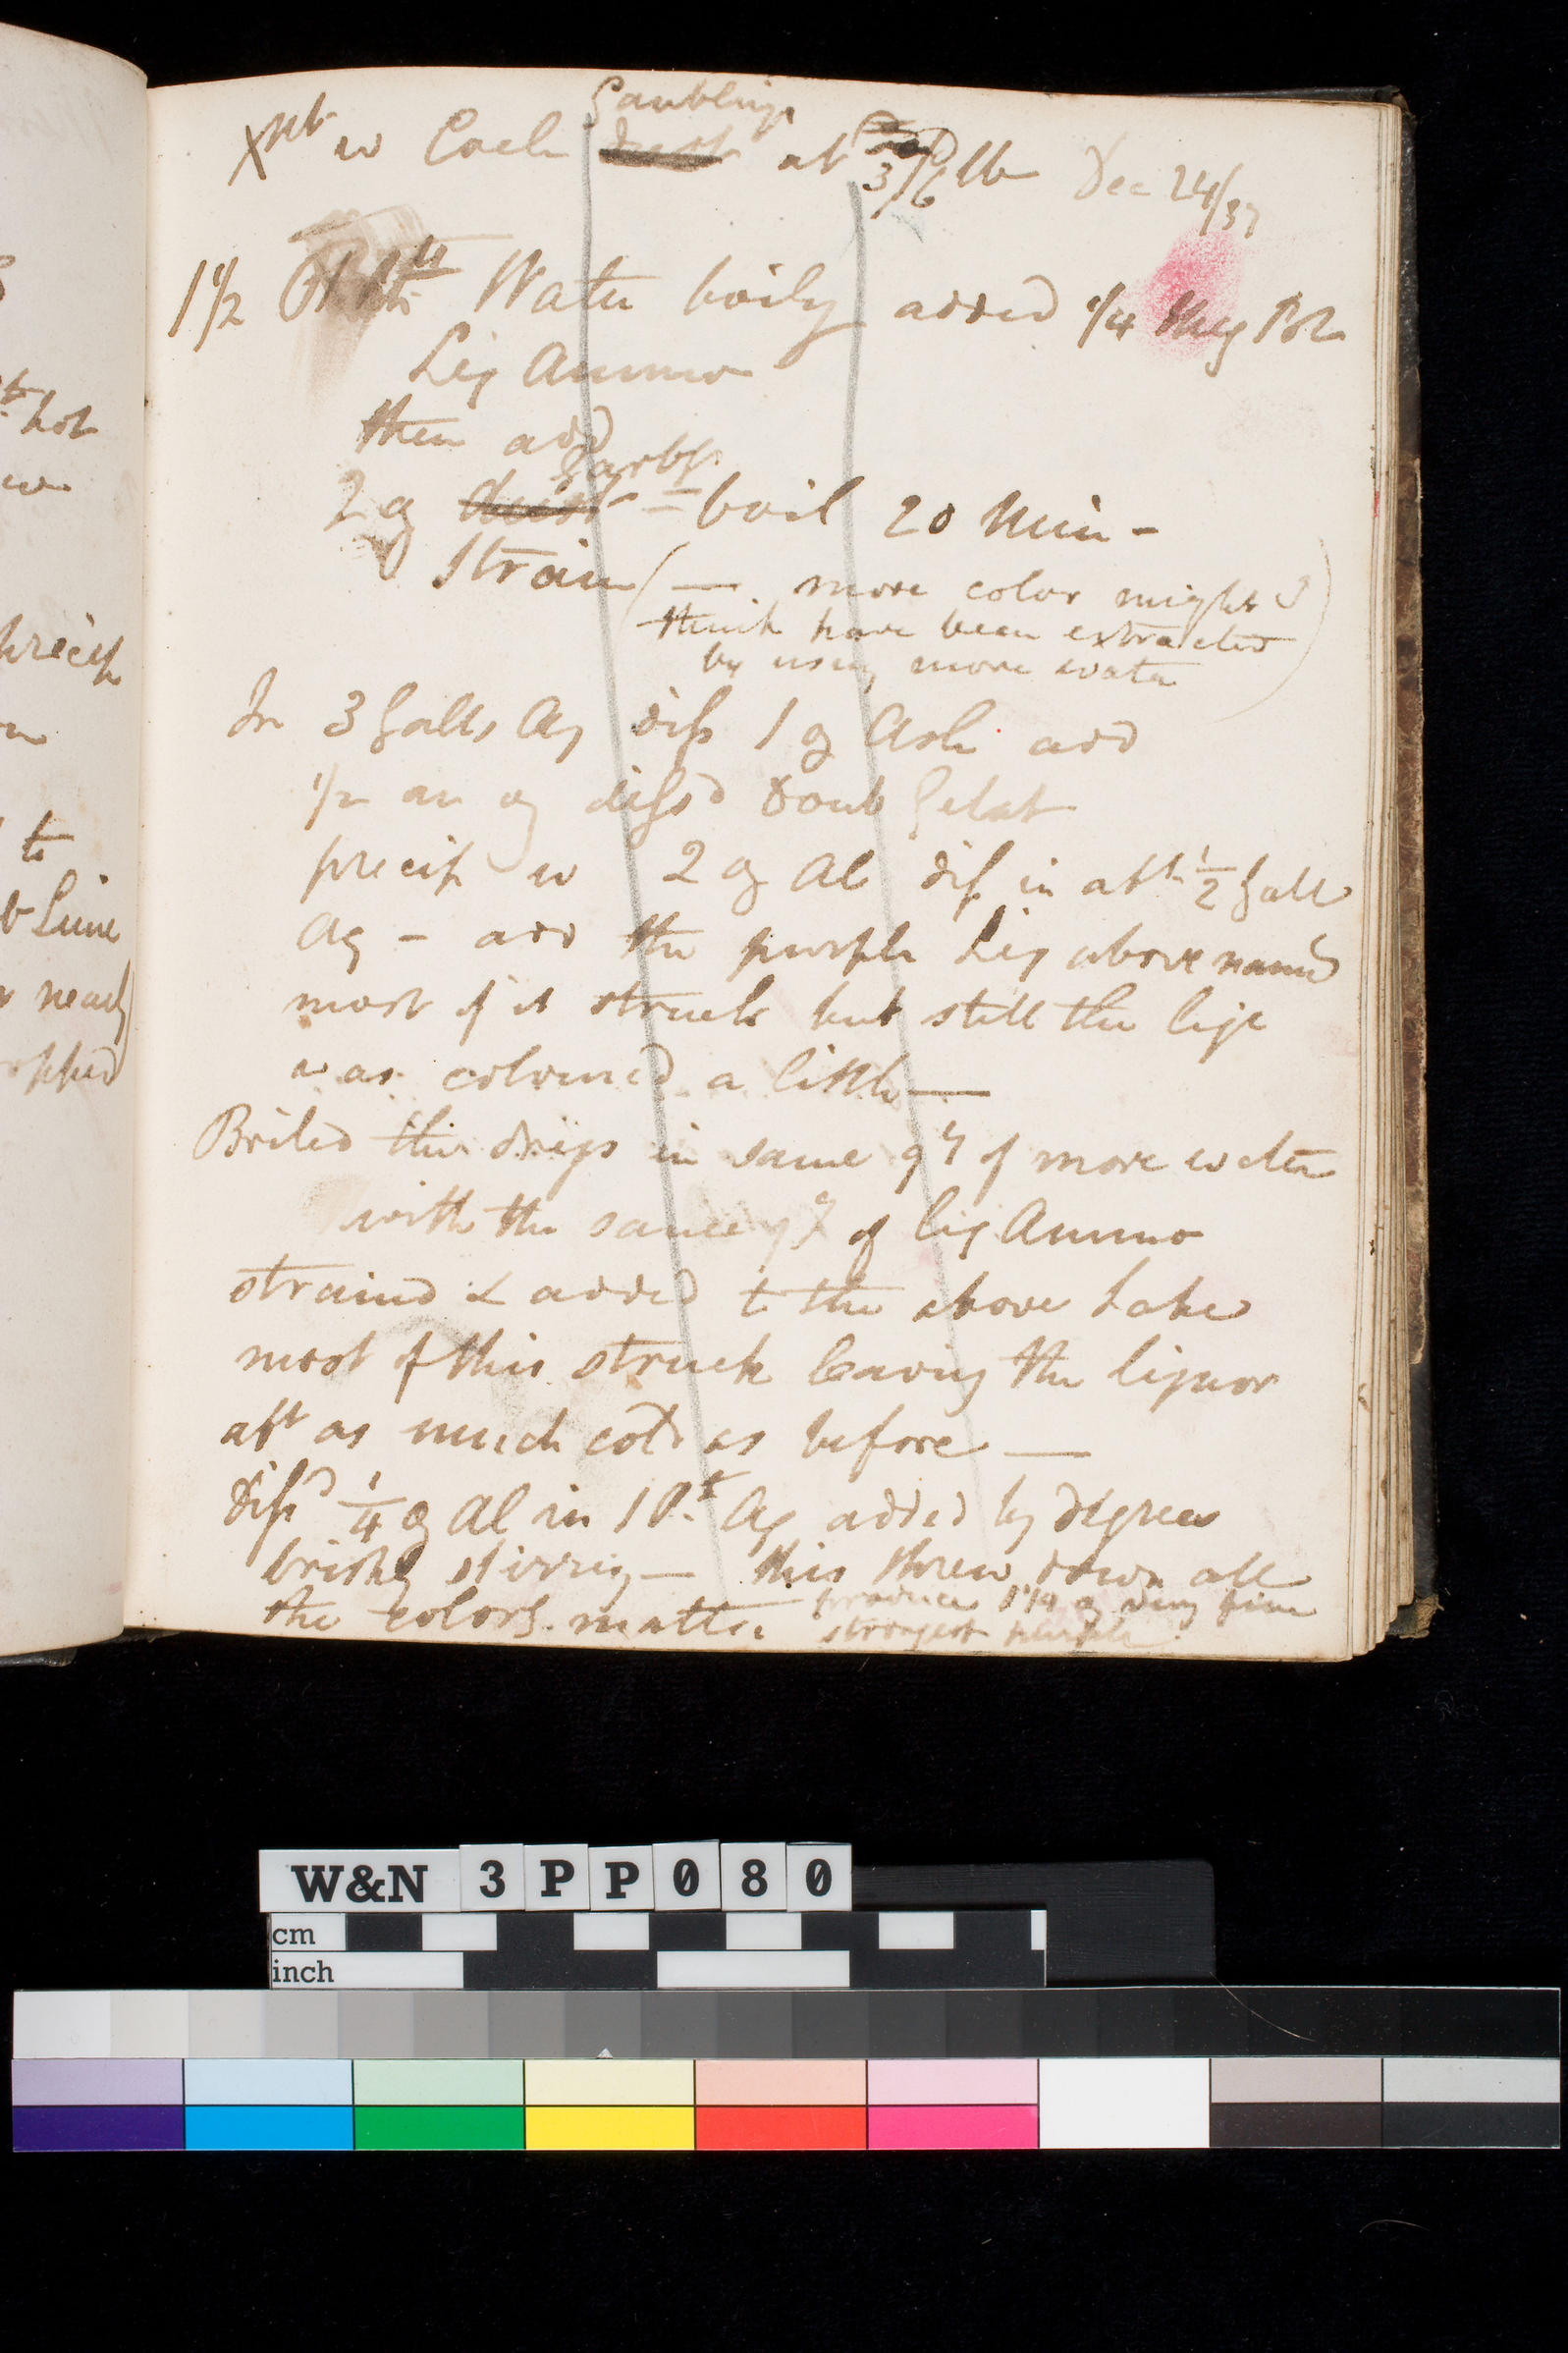 Garblings
Xpt w Coch dust at 3/6 lb Dec 24/37
1 1/2 Water boilg added 1/4
Liq Ammo
then add
Garbgs
2 oz dust = boil 20 Min -
Strain ( — more color might I
think have been extracted
by using more water )
In 3 Galls Aq diss 1 oz Ash add
1/2 an oz dissd Doub Gelat
precip w 2 oz Al diss in abt 1/2 Gall
Aq - add the purple Liq above namd
most of it struck but still the liqr
was coloured a little —
Boiled the dregs in same qy of more water
with the same qy of liq Ammo
straind & added to the above Lake
most of this struck leaving the liquor
abt as much cold as before —
Dissd 1/4 oz Al in 1 Pt Aq added by degrees
briskly stirring — this threw down all
the colorg matter produce 1 1/4 oz very fine
strongest purple.
t hot
w
precip
to
Lime
nearly
pped
W&N 3PP080
cm
inch